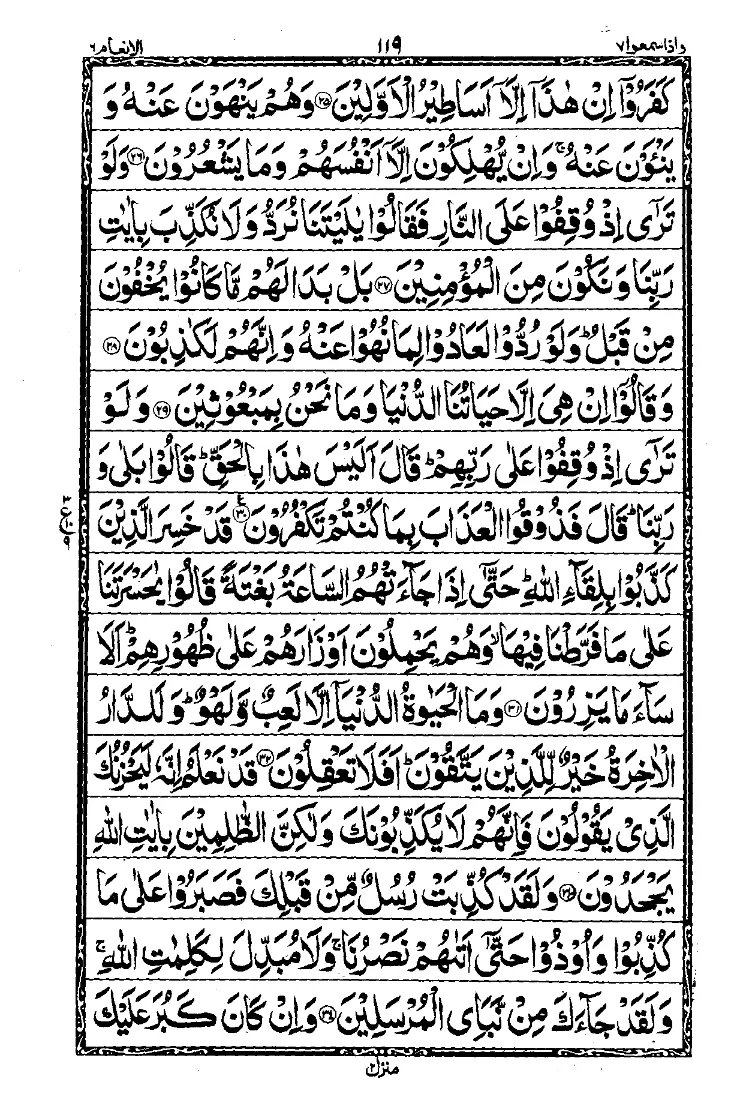 واذاسمعوا۷ ۱۱۹ الانعام۶
كَفَرُوْۤا اِنْ هٰذَاۤ اِلَّاۤ اَسَاطِيْرُ الْاَوَّلِيْنَ ﴿۲۵﴾ وَهُمْ يَنْهَوْنَ عَنْهُ وَ
يَنْـَٔوْنَ عَنْهُ ۚ وَاِنْ يُّهْلِكُوْنَ اِلَّاۤ اَنْفُسَهُمْ وَمَا يَشْعُرُوْنَ ﴿۲۶﴾ وَلَوْ
تَرٰۤى اِذْ وُقِفُوْا عَلَى النَّارِ فَقَالُوْا يٰلَيْتَنَا نُرَدُّ وَلَا نُكَذِّبَ بِاٰيٰتِ
رَبِّنَا وَنَكُوْنَ مِنَ الْمُؤْمِنِيْنَ ﴿۲۷﴾ بَلْ بَدَا لَهُمْ مَّا كَانُوْا يُخْفُوْنَ
مِنْ قَبْلُ ؕ وَلَوْ رُدُّوْا لَعَادُوْا لِمَا نُهُوْا عَنْهُ وَاِنَّهُمْ لَكٰذِبُوْنَ ﴿۲۸﴾
وَقَالُوْۤا اِنْ هِىَ اِلَّا حَيَاتُنَا الدُّنْيَا وَمَا نَحْنُ بِمَبْعُوْثِيْنَ ﴿۲۹﴾ وَلَوْ
تَرٰۤى اِذْ وُقِفُوْا عَلٰى رَبِّهِمْ ؕ قَالَ اَلَيْسَ هٰذَا بِالْحَقِّ ؕ قَالُوْا بَلٰى وَ
رَبِّنَا ؕ قَالَ فَذُوْقُوا الْعَذَابَ بِمَا كُنْتُمْ تَكْفُرُوْنَ ﴿۳۰﴾ قَدْ خَسِرَ الَّذِيْنَ
۳ ع ۱۰ ۹
كَذَّبُوْا بِلِقَآءِ اللّٰهِ ؕ حَتّٰۤى اِذَا جَآءَتْهُمُ السَّاعَةُ بَغْتَةً قَالُوْا يٰحَسْرَتَنَا
عَلٰى مَا فَرَّطْنَا فِيْهَا ۙ وَهُمْ يَحْمِلُوْنَ اَوْزَارَهُمْ عَلٰى ظُهُوْرِهِمْ ؕ اَلَا
سَآءَ مَا يَزِرُوْنَ ﴿۳۱﴾ وَمَا الْحَيٰوةُ الدُّنْيَاۤ اِلَّا لَعِبٌ وَّلَهْوٌ ؕ وَلَلدَّارُ
الْاٰخِرَةُ خَيْرٌ لِّلَّذِيْنَ يَتَّقُوْنَ ؕ اَفَلَا تَعْقِلُوْنَ ﴿۳۲﴾ قَدْ نَعْلَمُ اِنَّهٗ لَيَحْزُنُكَ
الَّذِىْ يَقُوْلُوْنَ فَاِنَّهُمْ لَا يُكَذِّبُوْنَكَ وَلٰكِنَّ الظّٰلِمِيْنَ بِاٰيٰتِ اللّٰهِ
يَجْحَدُوْنَ ﴿۳۳﴾ وَلَقَدْ كُذِّبَتْ رُسُلٌ مِّنْ قَبْلِكَ فَصَبَرُوْا عَلٰى مَا
كُذِّبُوْا وَاُوْذُوْا حَتّٰۤى اَتٰىهُمْ نَصْرُنَا ۚ وَلَا مُبَدِّلَ لِكَلِمٰتِ اللّٰهِ ۚ
وَلَقَدْ جَآءَكَ مِنْ نَّبَاِى الْمُرْسَلِيْنَ ﴿۳۴﴾ وَاِنْ كَانَ كَبُرَ عَلَيْكَ
منزل۲